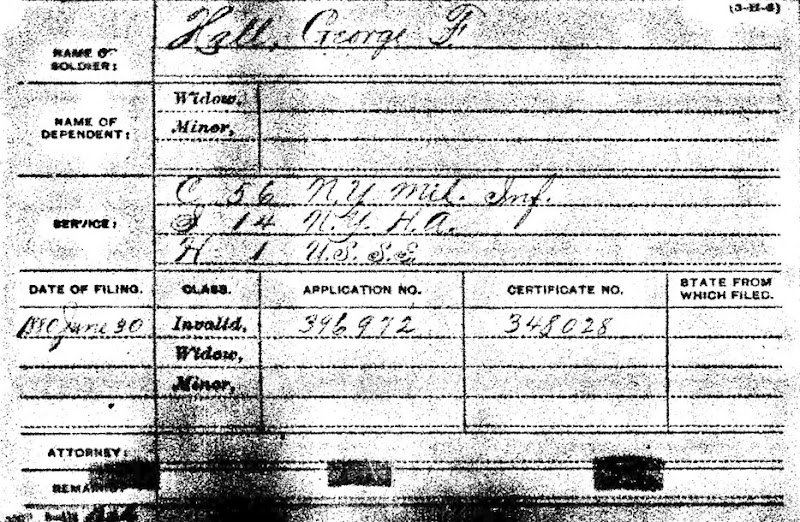 (3-H-6)
NAME OF SOLDIER: Hall, George F.
NAME OF DEPENDENT: Widow,
Minor,
SERVICE: C 56 N.Y. Mil. Inf.
I 14 N.Y. H.A.
H 1 U.S. S.S.
DATE OF FILING. CLASS. APPLICATION NO. CERTIFICATE NO. STATE FROM WHICH FILED.
1880 June 30 Invalid, 396972 348028
Widow,
Minor,
ATTORNEY:
REMARKS: